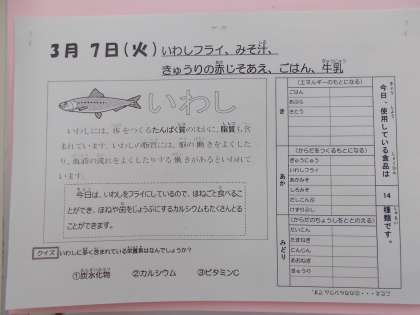 3月 7日(火) いわしフライ、みそ汁、
きゅうりの赤じそあえ、ごはん、牛乳
いわし
いわしには、体をつくるたんぱく質のほかに、脂質も含
まれています。いわしの脂質には、脳の働きをよくした
り、血液の流れをよくしたりする働きがあるといわれて
います。
今日は、いわしをフライにしているので、ほねごと食べるこ
とができ、ほねや歯をじょうぶにするカルシウムもたくさんとる
ことができます。
クイズ いわしに多く含まれている栄養素はなんでしょうか?
①炭水化物 ②カルシウム ③ビタミンC
今日、使用している食品は
14
種類です。
き
(エネルギーのもとになる)
ごはん
あぶら
さとう
あか
(からだをつくるもとになる)
ぎゅうにゅう
いわしフライ
あかみそ
しろみそ
だいこんば
けずりぶし
みどり
(からだのちょうしをととのえる)
だいこん
たまねぎ
にんじん
あおねぎ
きゅうり